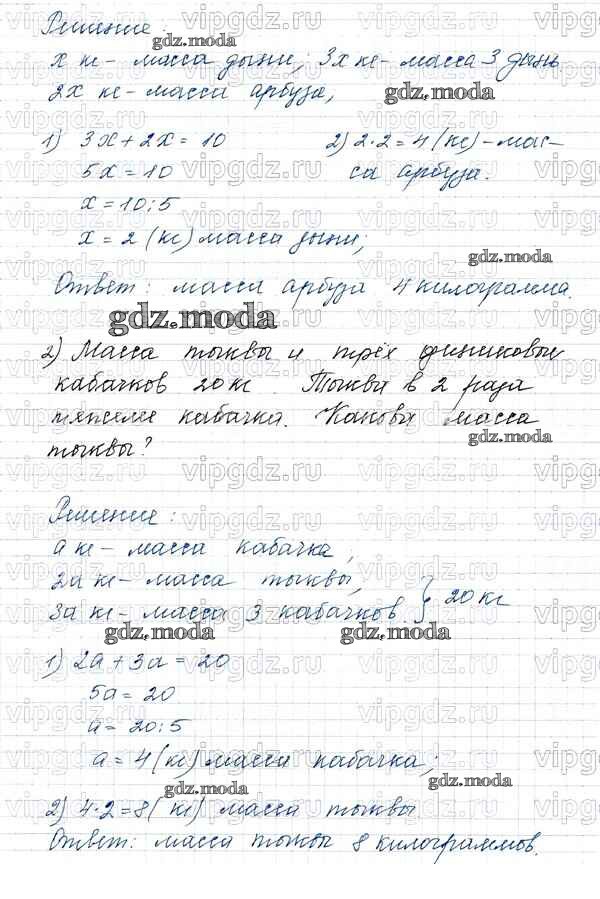 Решение:
х кг - масса дыни; 3х кг - масса 3 дынь
2х кг - масса арбуза,
1) 3х + 2х = 10
5х = 10
х = 10:5
х = 2 (кг) масса дыни;
2) 2·2=4 (кг) - мас-
са арбуза.
Ответ: масса арбуза 4 килограмма.
2) Масса тыквы и трёх одинаковых
кабачков 20 кг. Тыква в 2 раза
тяжелее кабачка. Какова масса
тыквы?
Решение:
а кг - масса кабачка,
2а кг - масса тыквы,
3а кг - масса 3 кабачков. } 20 кг
1) 2а + 3а = 20
5а = 20
а = 20:5
а = 4 (кг) масса кабачка;
2) 4·2=8 (кг) масса тыквы
Ответ: масса тыквы 8 килограммов.
gdz.moda
vipgdz.ru